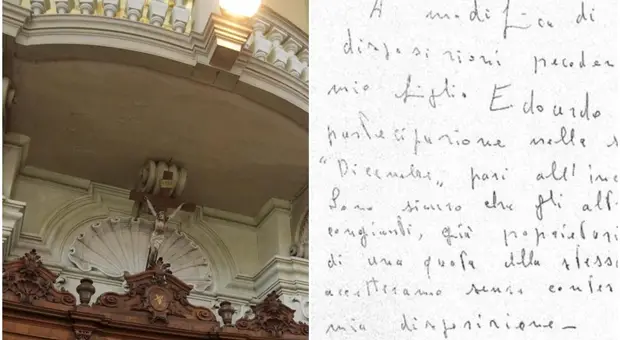 A modifica di
disposizioni preceden
mio figlio Edoardo
partecipazione nella s
"Dicembre" pari all'in
Sono sicuro che gli alt
congiunti, già proprietari
di una quota della stess
accetteranno senza contes
mia disposizione -